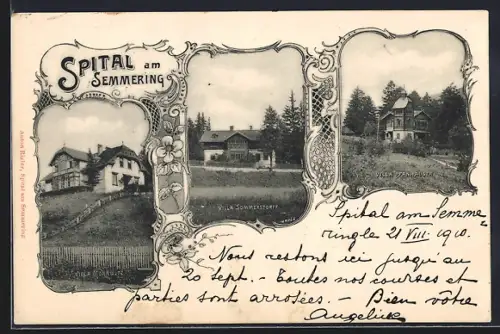 SPITAL am
SEMMERING
VILLA SOMMERSTORFF
Spital am Semme
ringle 21 VIII. 1910.
Nous restons ici jusqu'au
20 sept. - Toutes nos courses et
parties sont arrosées. - Bien vôtre
Angelica
VILLA
VILLA
Spital am Semmering